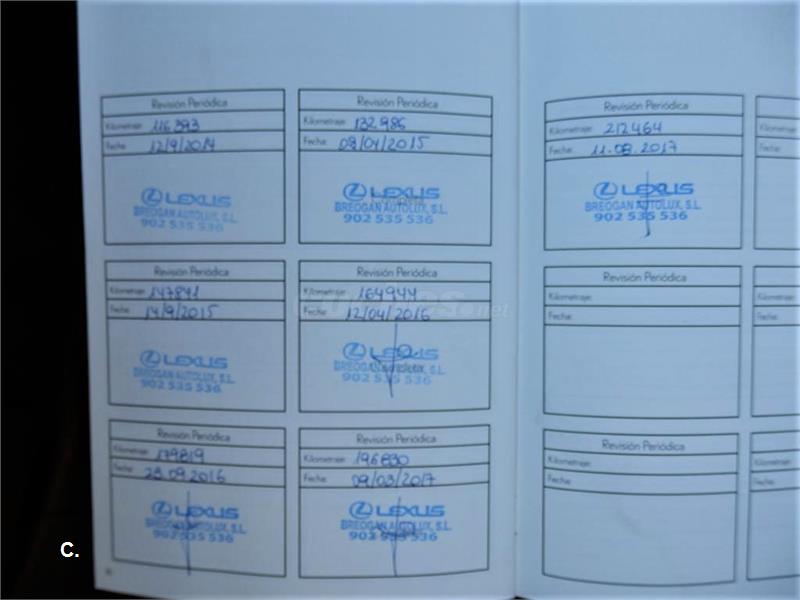 Revisión Periódica
Kilometraje: 116393
Fecha: 12/9/2014
LEXUS
BREOGAN AUTOLUX, S.L.
902 535 536
Revisión Periódica
Kilometraje: 132986
Fecha: 08/04/2015
LEXUS
BREOGAN AUTOLUX, S.L.
902 535 536
Revisión Periódica
Kilometraje: 147841
Fecha: 14/9/2015
LEXUS
BREOGAN AUTOLUX, S.L.
902 535 536
Revisión Periódica
Kilometraje: 164944
Fecha: 12/04/2016
LEXUS
902 535 536
Revisión Periódica
Kilometraje: 179819
Fecha: 23.09.2016
LEXUS
BREOGAN AUTOLUX, S.L.
902 535 536
Revisión Periódica
Kilometraje: 196830
Fecha: 09/03/2017
LEXUS
BREOGAN AUTOLUX, S.L.
902 535 536
Revisión Periódica
Kilometraje: 212464
Fecha: 11.09.2017
LEXUS
BREOGAN AUTOLUX, S.L.
902 535 536
Revisión Periódica
Kilometraje:
Fecha:
Revisión Periódica
Kilometraje:
Fecha:
C.